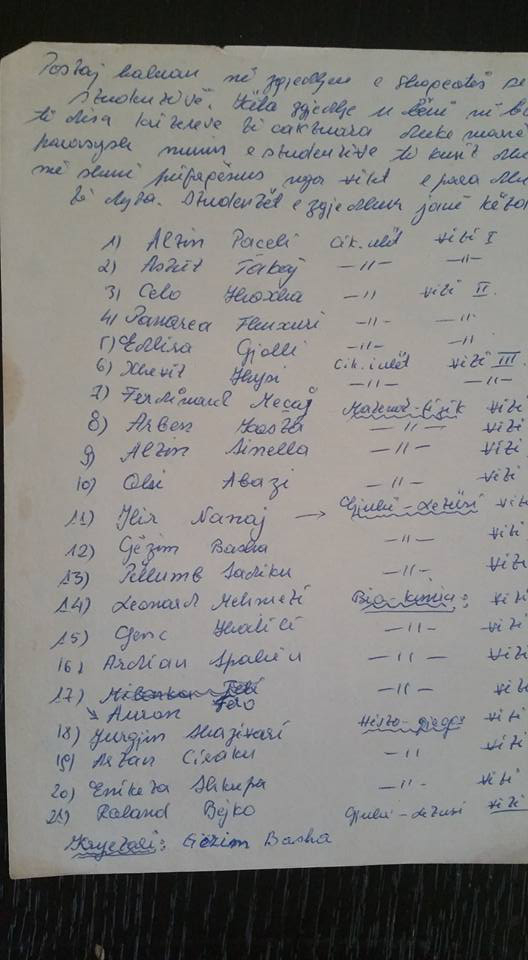 Pastaj kaluan në zgjedhjen e shoqatës se
studentëvë. Këta zgjedhje u bënë në b
ti disa kritereve të caktuara duke marrë
parasysh numrin e studentëve të kursit
më shumë përpjesëtimi nga viti e para
të dyta. Studentët e zgjedhur janë këta
1) Altin Paceli Cik. ulët viti I
2) Astrit Takaj —//— —//—
3) Celo Hoxha —// viti II
4) Panarea Flluxuri —//— —//
5) Edlira Gjolli —//— —//
6) Xhevit Hysi Cik. i ulët viti III
7) Ferdinand Meçaj —//— —//—
8) Arben Matemat-fizik viti
9) Altin Sinella —//— viti
10) Olsi Abazi —// viti
11) Ilir Nanaj → Gjuhë-Letërsi viti
12) Gëzim Basha —//— viti
13) Pëllumb Sadiku —//— viti
14) Leonard Mehmeti Bio-kimia: viti
15) Genc Halili —//— viti
16) Ardian Spahiu —//— viti
17) —//— viti
Auron Fero
18) Jurgjin Shazivari Histo-gjeogr viti
19) Artan Ciraku —// viti
20) Eniketa Shkupa —//— viti
21) Roland Bejko Gjuhë-Letërsi viti
Kryetari: Gëzim Basha